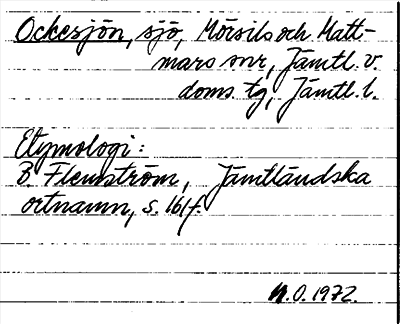 Ockesjön, sjö, Mörsils och Matt-
mars snr, Jämtl. v.
doms. tg, Jämtl. l.
Etymologi:
B. Flemström, Jämtländska
ortnamn, s. 161f.
N.O. 1972.